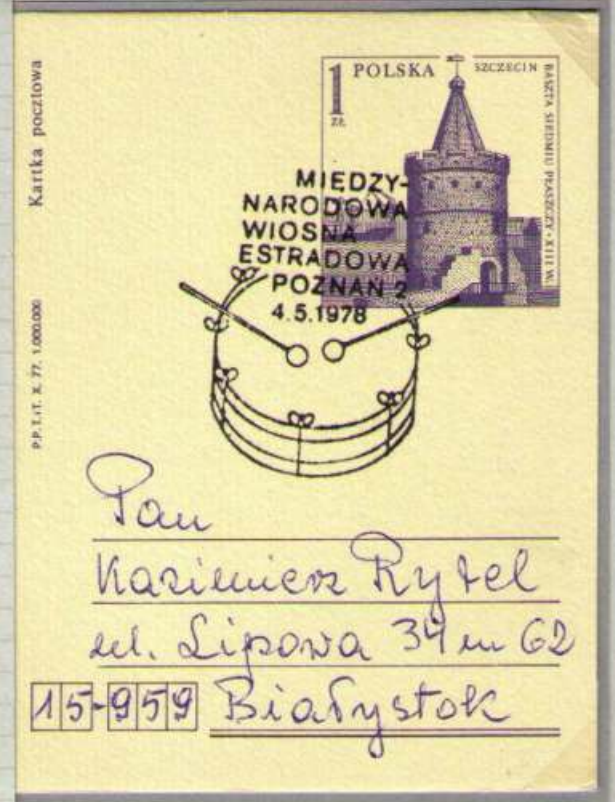 Kartka pocztowa
P.P.T.iT. X. 77. 1.000.000
1 ZŁ
POLSKA
SZCZECIN
BASZTA SIEDMIU PŁASZCZY · XIII W.
MIĘDZY-
NARODOWA
WIOSNA
ESTRADOWA
POZNAŃ 2
4.5.1978
Pan
Kazimierz Rytel
ul. Lipowa 34 m 62
15-959 Białystok